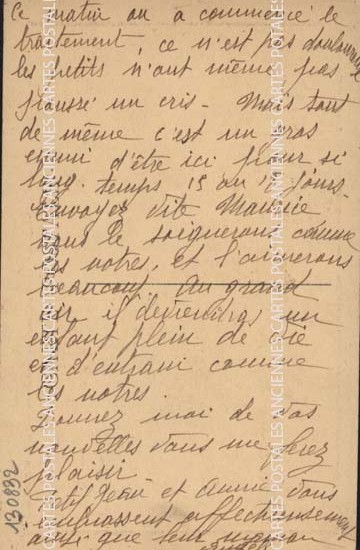 Ce matin on a commencé le
traitement, ce n'est pas douloureux
les petits n'ont même pas
poussé un cris - Mais tout
de même c'est un gros
ennui d'être ici pour si
long temps 15 ou jours -
Envoyez vite Maurice
nous le soignerons comme
les nôtres, et l'aimerons
beaucoup. Au grand
air il deviendras un
enfant plein de vie
et d'entrain comme
les notres.
Donnez moi de vos
nouvelles vous me ferez
plaisir -
Petit Jean et Annie vous
embrassent affectueusement
ainsi que leur maman
130832
CARTES POSTALES ANCIENNES CARTES POSTALES ANCIENNES